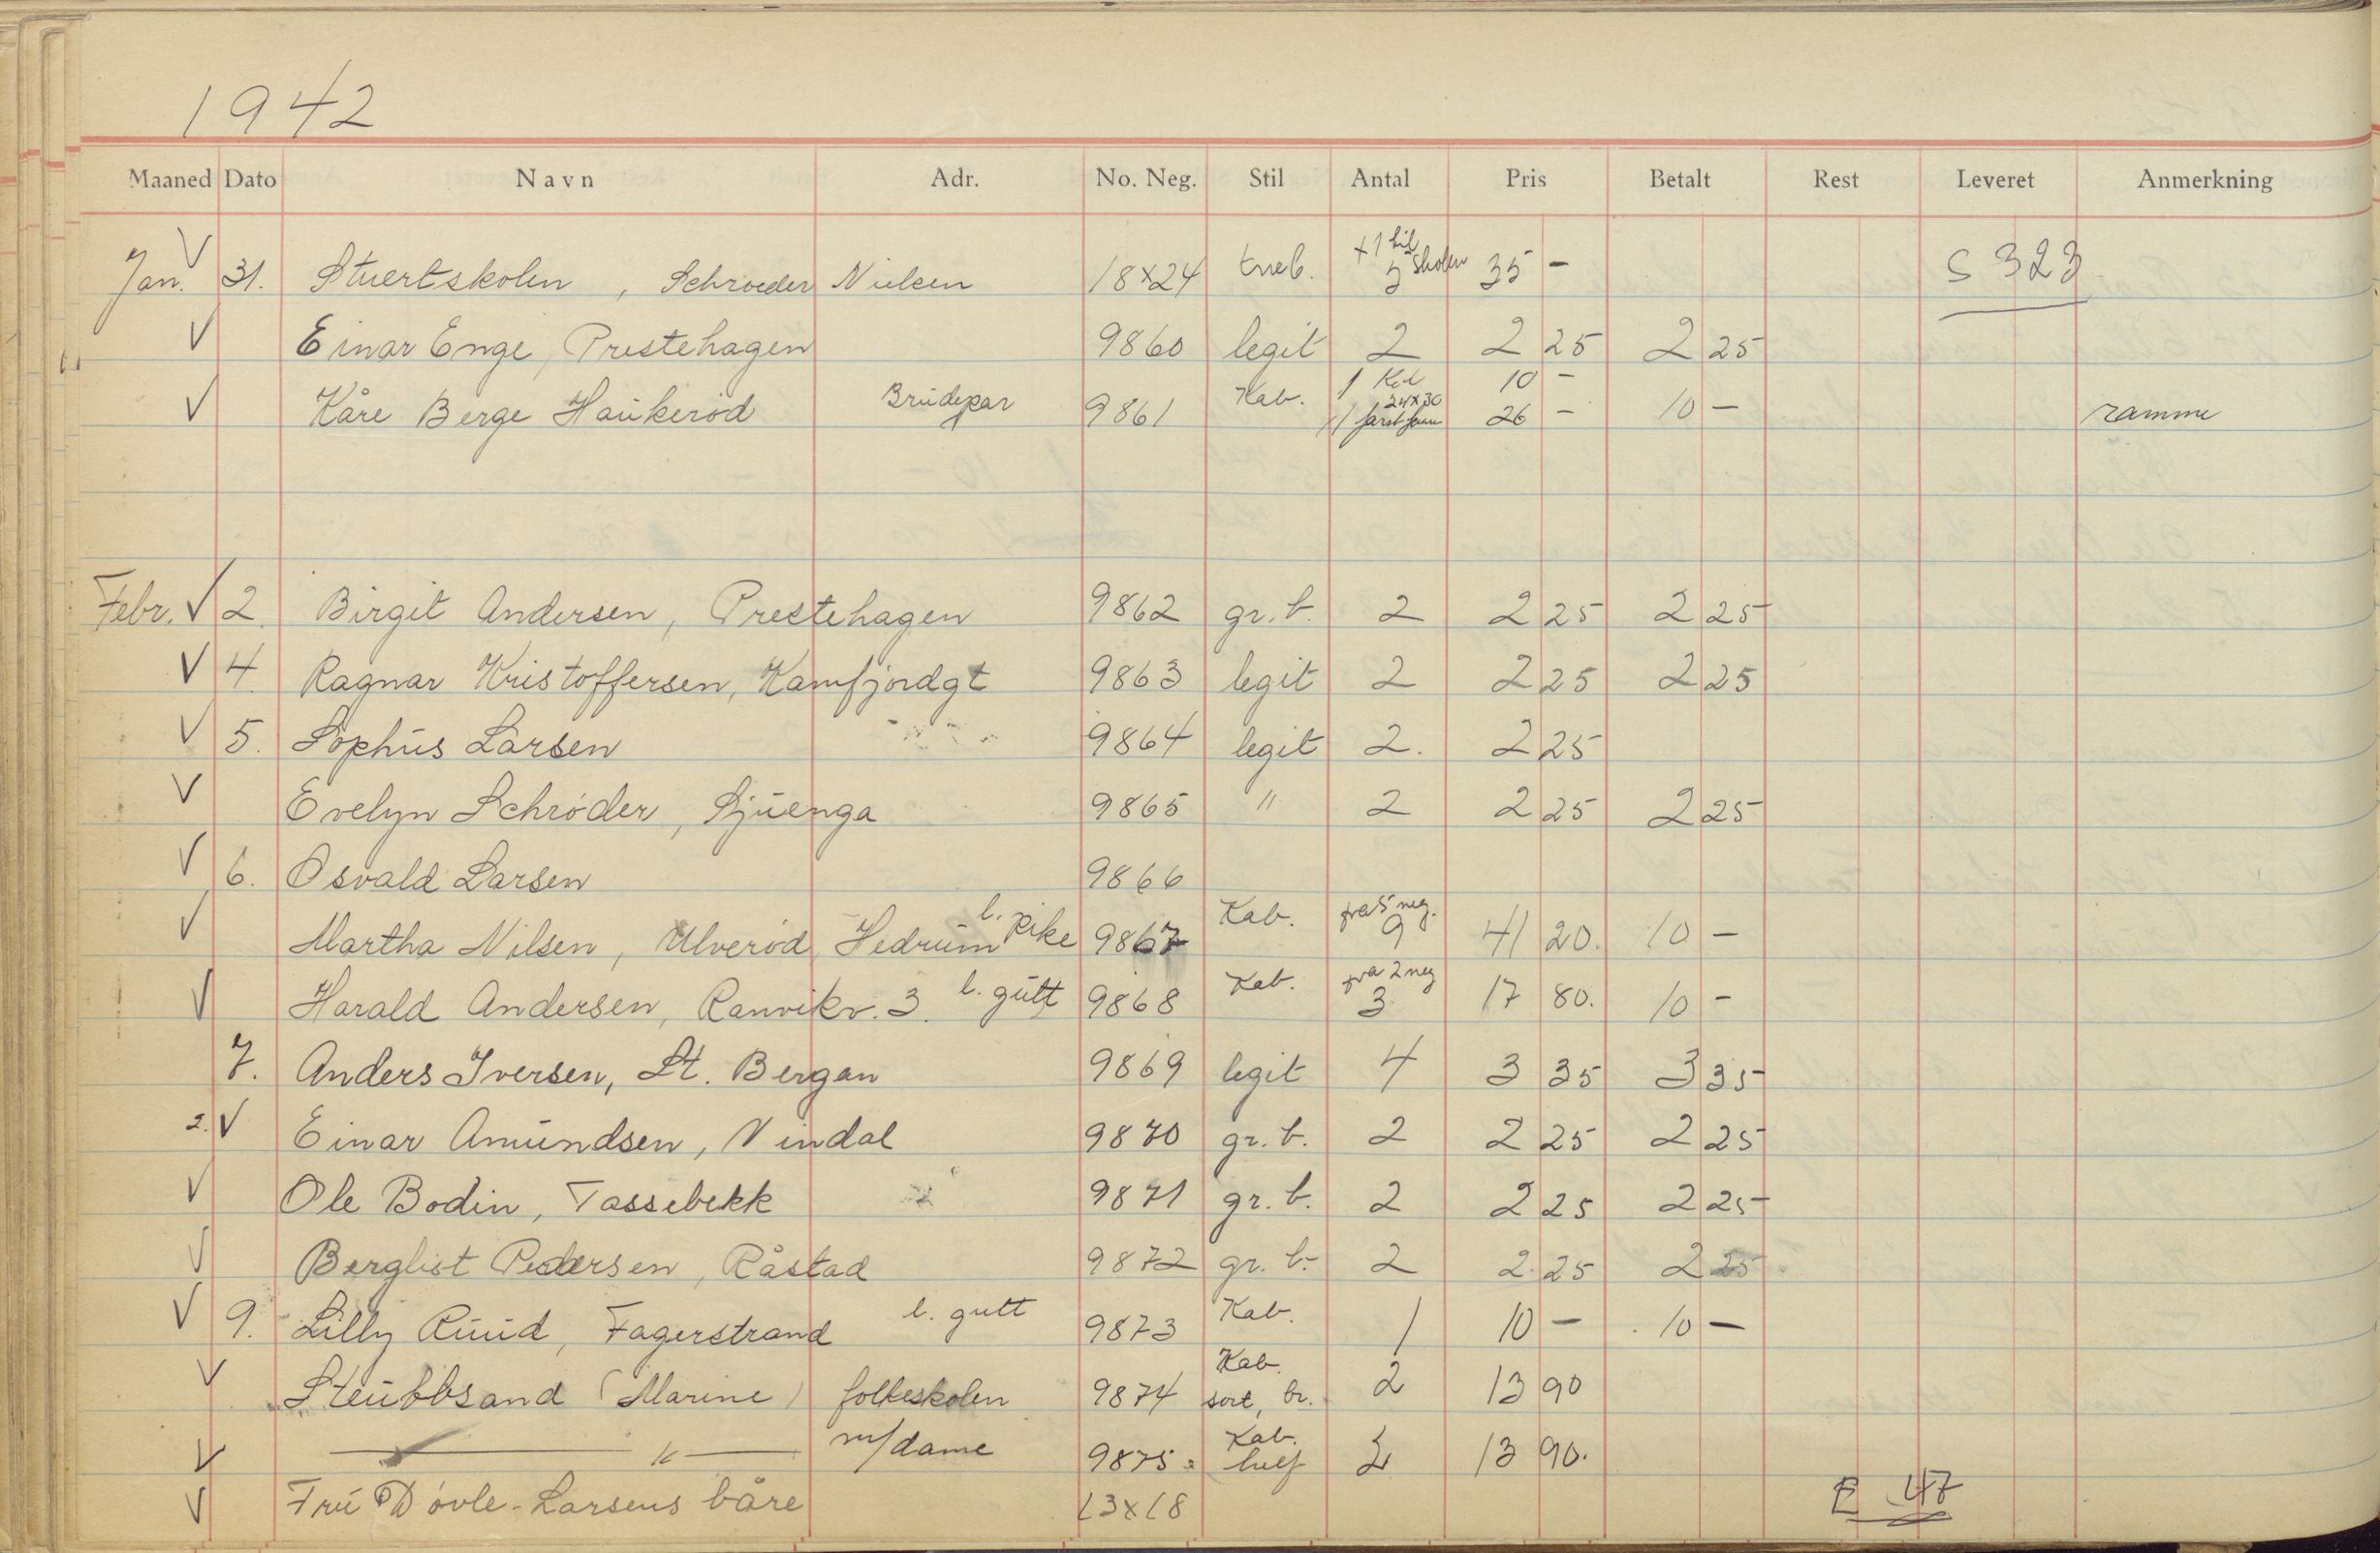 1942
Maaned Dato Navn Adr. No. Neg. Stil Antal Pris Betalt Rest Leveret Anmerkning
Jan. V 31. Stuertskolen, Schroeder Nielsen 18x24 + 1 til skolen 5 35 - S 323
V Einar Enge, Prestehagen 9860 legit 2 2 25 2 25
V Kåre Berge Haukerød Brudepar 9861 Kab. 1 Kab 10 - 10 - ramme
24x30 26 -
Febr. V 2. Birgit Andersen, Prestehagen 9862 gr. b. 2 2 25 2 25
V 4. Ragnar Kristoffersen, Kamfjordgt 9863 legit 2 2 25 2 25
V 5. Sophus Larsen 9864 legit 2. 2 25
V Evelyn Schrøder, Sjuenga 9865 " 2 2 25 2 25
V 6. Osvald Larsen 9866
V Martha Nilsen, Ulverød Hedrum l. pike 9867 Kab. fra 5 neg. 9 41 20. 10 -
V Harald Andersen, Ranvikv. 3. l. gutt 9868 Kab. fra 2 neg 3 17 80. 10 -
7. Anders Iversen, St. Bergan 9869 legit 4 3 35 3 35
2. V Einar Amundsen, Vindal 9870 gr. b. 2 2 25 2 25
V Ole Bodin, Tassebekk 9871 gr. b. 2 2 25 2 25
V Bergliot Pedersen, Råstad 9872 gr. b. 2 2 25 2 25
V 9. Lilly Ruud, Fagerstrand l. gutt 9873 Kab. 1 10 - 10 -
V Steubbsand (Marine) folkeskolen 9874 Kab. sort, br. 2 13 90
V — " — m/dame 9875 Kab. 2 13 90.
V Fru Døvle-Larsens båre 13x18 E 47